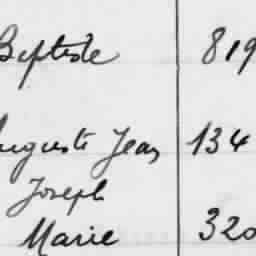 Baptiste 819
Auguste Jean 134
Joseph
Marie 320